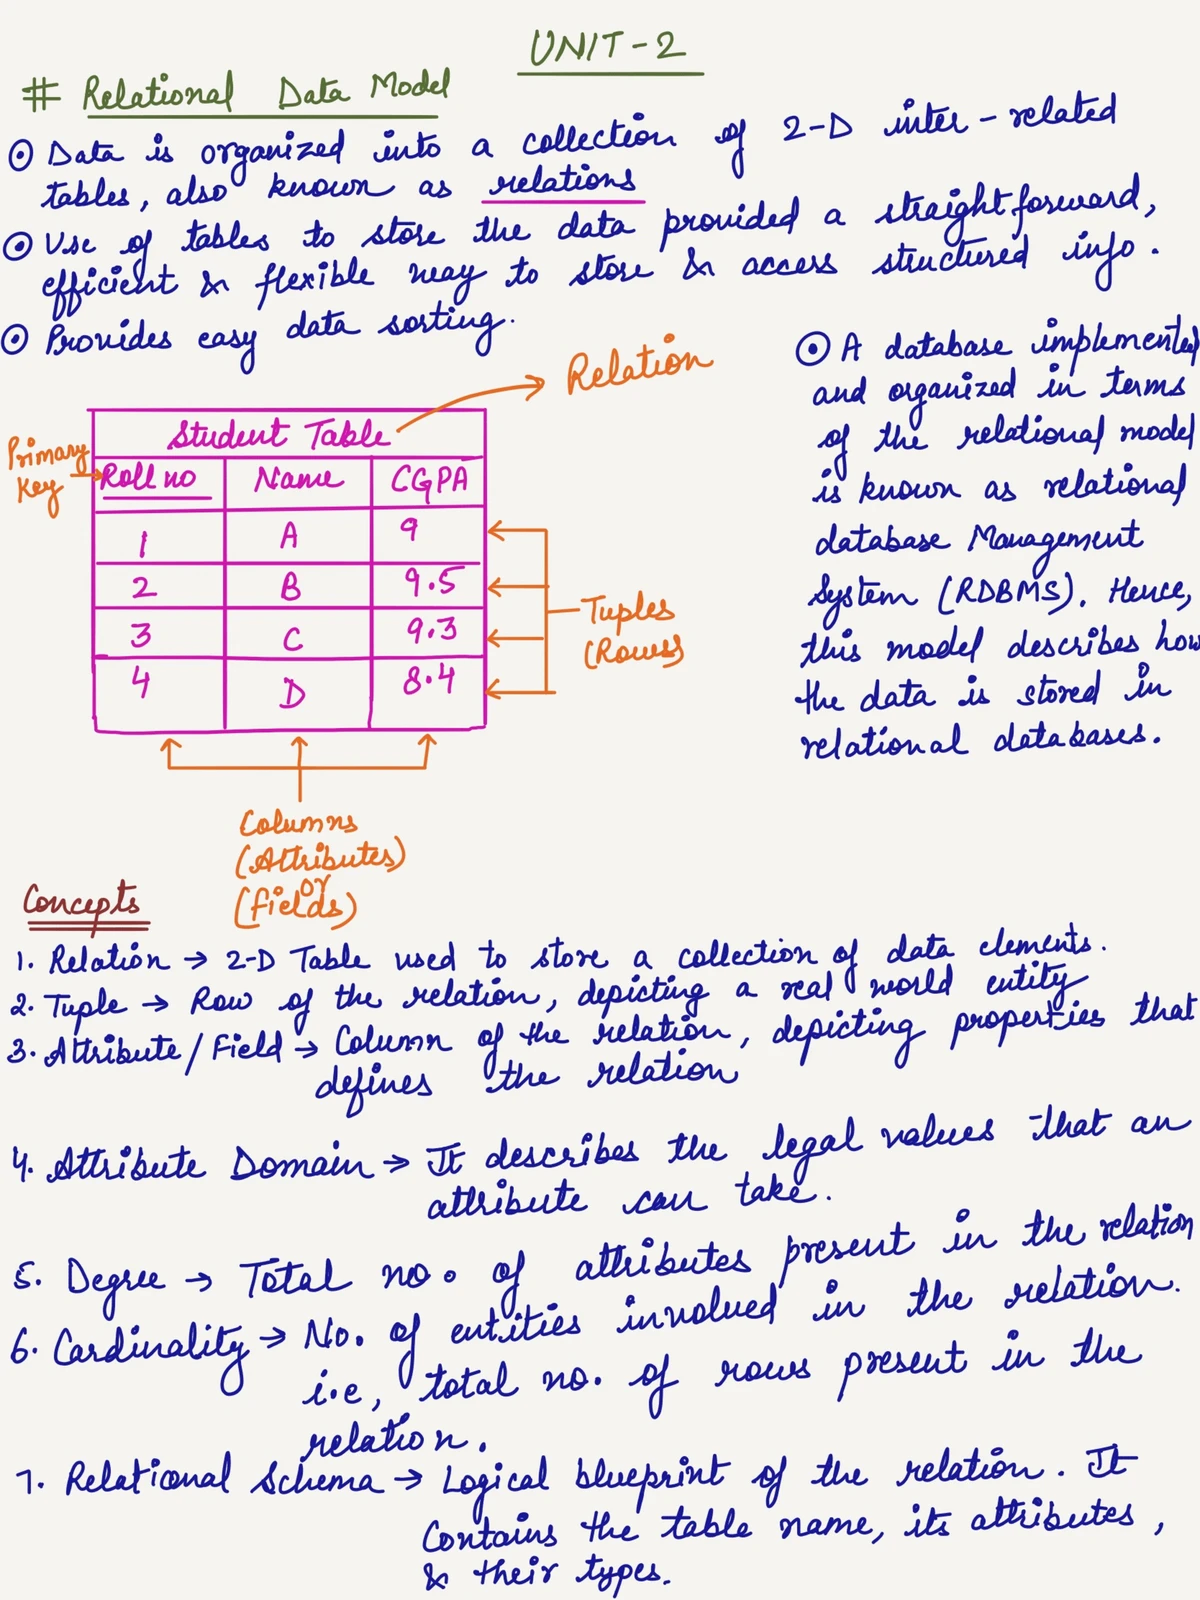 UNIT-2
# Relational Data Model
⊙ Data is organized into a collection of 2-D inter-related
tables, also known as relations
⊙ Use of tables to store the data provided a straightforward,
efficient & flexible way to store & access structured info.
⊙ Provides easy data sorting.
Relation
Student Table
Primary
Key
Roll no Name CGPA
1 A 9
2 B 9.5
3 C 9.3
4 D 8.4
Tuples
(Rows)
Columns
(Attributes)
or
(fields)
⊙ A database implemented
and organized in terms
of the relational model
is known as relational
database Management
System (RDBMS). Hence,
this model describes how
the data is stored in
relational databases.
Concepts
1. Relation → 2-D Table used to store a collection of data elements.
2. Tuple → Row of the relation, depicting a real world entity
3. Attribute/Field → Column of the relation, depicting properties that
defines the relation
4. Attribute Domain → It describes the legal values that an
attribute can take.
5. Degree → Total no. of attributes present in the relation
6. Cardinality → No. of entities involved in the relation.
i.e, total no. of rows present in the
relation.
7. Relational Schema → Logical blueprint of the relation. It
Contains the table name, its attributes,
& their types.